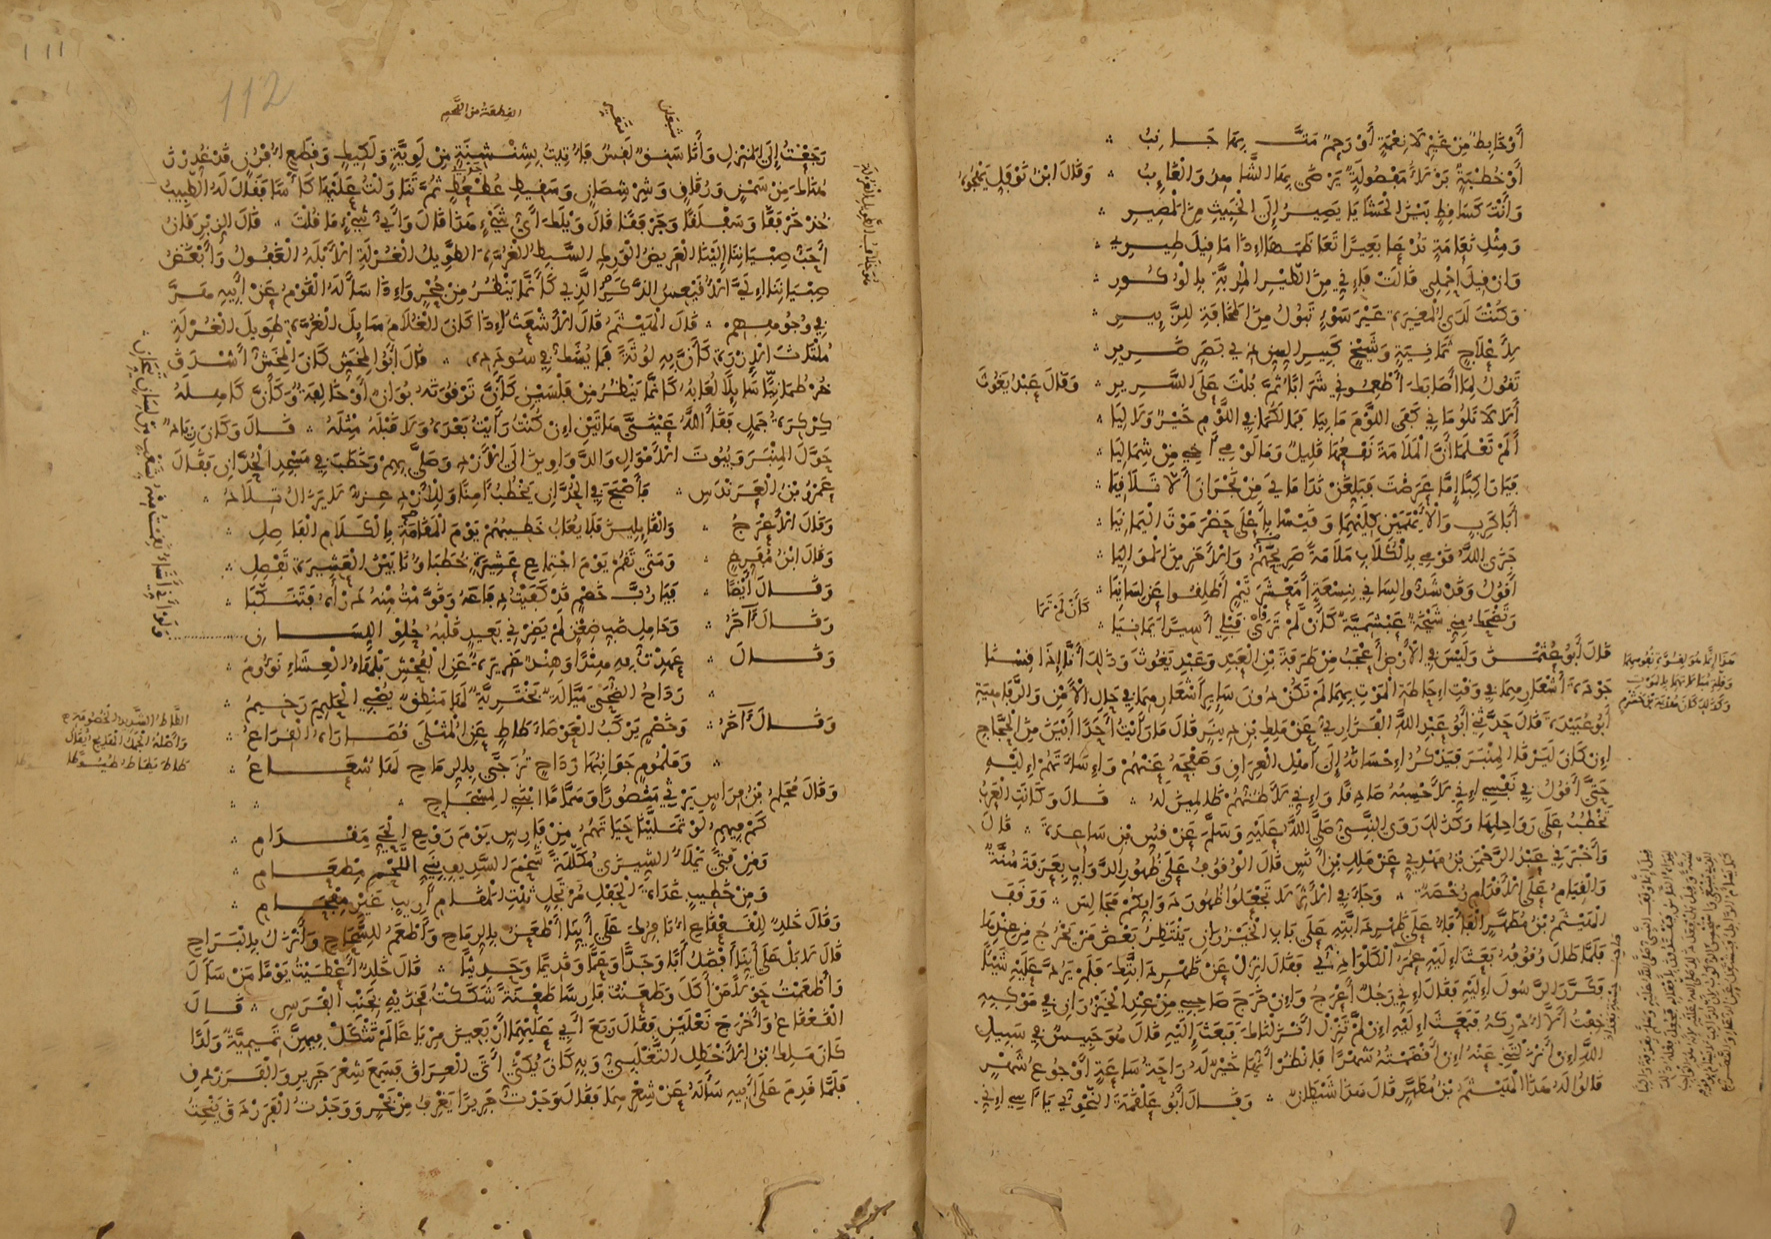 أَوْ خَابِطٌ مِنْ غَيْرِ لَا نِعْمَةٍ أَوْ رَحِمٌ مَتَّ بِهَا جَانِبُ
أَوْ خُطْبَةٌ بَزْلَاءُ مَفْصُولَةٌ يَرْضَى بِهَا الشَّاهِدُ وَالْغَائِبُ وَقَالَ ابْنُ نَوْفَلٍ يَهْجُو
وَأَنْتَ كَسَاقِطٍ بَيْنَ الْحَشَايَا يَصِيرُ إِلَى الْخَبِيثِ مِنَ الْمَصِيرِ
وَمِثْلِ نَعَامَةٍ تُدْعَى بَعِيرًا تَعَاظُمَهَا إِذَا مَا قِيلَ طِيرِي
وَإِنْ قِيلَ احْمِلِي قَالَتْ فَإِنِّي مِنَ الطَّيْرِ الْمُرِبَّةِ بِالْوُكُورِ
وَكُنْتَ لَدَى الْمُغِيرَةِ عَيْرَ سَوْءٍ تَبُولُ مِنَ الْمَخَافَةِ لِلزَّئِيرِ
لِأَعْلَاجٍ ثَمَانِيَةٍ وَشَيْخٍ كَبِيرِ السِّنِّ ذِي بَصَرٍ ضَرِيرِ
تَقُولُ لِمَا أَصَابَكَ أَطْعِمُونِي شَرَابًا ثُمَّ بُلْتَ عَلَى السَّرِيرِ وَقَالَ عَبْدُ يَغُوثَ
أَلَا لَا تَلُومَانِي كَفَى اللَّوْمَ مَا بِيَا فَمَا لَكُمَا فِي اللَّوْمِ خَيْرٌ وَلَا لِيَا
أَلَمْ تَعْلَمَا أَنَّ الْمَلَامَةَ نَفْعُهَا قَلِيلٌ وَمَا لَوْمِي أَخِي مِنْ شِمَالِيَا
فَيَا رَاكِبًا إِمَّا عَرَضْتَ فَبَلِّغَنْ نَدَامَايَ مِنْ نَجْرَانَ أَلَّا تَلَاقِيَا
أَبَا كَرِبٍ وَالْأَيْهَمَيْنِ كِلَيْهِمَا وَقَيْسًا بِأَعْلَى حَضْرَمَوْتَ الْيَمَانِيَا
جَزَى اللَّهُ قَوْمِي بِالْكُلَابِ مَلَامَةً صَرِيحَهُمْ وَالْآخَرِينَ الْمَوَالِيَا
أَقُولُ وَقَدْ شَدُّوا لِسَانِي بِنِسْعَةٍ أَمَعْشَرَ تَيْمٍ أَطْلِقُوا عَنْ لِسَانِيَا
وَتَضْحَكُ مِنِّي شَيْخَةٌ عَبْشَمِيَّةٌ كَأَنْ لَمْ تَرَيْ قَبْلِي أَسِيرًا يَمَانِيَا
كَأَنْ لَمْ تَرَا
قَالَ أَبُو عُثْمَنَ وَلَيْسَ فِي الْأَرْضِ أَعْجَبُ مِنْ طَرَفَةَ بْنِ الْعَبْدِ وَعَبْدِ يَغُوثَ وَذَلِكَ أَنَّا إِذَا قِسْنَا
جَوْدَةَ أَشْعَارِهِمَا فِي وَقْتِ إِحَاطَةِ الْمَوْتِ بِهِمَا لَمْ تَكُنْ دُونَ سَائِرِ أَشْعَارِهِمَا فِي حَالِ الْأَمْنِ وَالرَّفَاهِيَةِ
أَبُو عُبَيْدَةَ قَالَ حَدَّثَنِي أَبُو عَبْدِ اللَّهِ الْفَزَارِيُّ عَنْ مَلِكِ بْنِ دِينَرٍ قَالَ مَا رَأَيْتُ أَحَدًا أَبْيَنَ مِنَ الْحَجَّاجِ
إِنْ كَانَ لَيَرْقَى الْمِنْبَرَ فَيَذْكُرُ إِحْسَانَهُ إِلَى أَهْلِ الْعِرَاقِ وَصَفْحَهُ عَنْهُمْ وَإِسَاءَتَهُمْ إِلَيْهِ
حَتَّى أَقُولَ فِي نَفْسِي إِنِّي لَأَحْسِبُهُ صَادِقًا وَإِنِّي لَأَظُنُّهُمْ ظَالِمِينَ لَهُ قَالَ وَكَانَتِ الْعَرَبُ
تَخْطُبُ عَلَى رَوَاحِلِهَا وَكَذَلِكَ رَوَى النَّبِيُّ صَلَّى اللَّهُ عَلَيْهِ وَسَلَّمَ عَنْ قُسِّ بْنِ سَاعِدَةَ قَالَ
وَأَخْبَرَنِي عَبْدُ الرَّحْمَنِ بْنُ مَهْدِيٍّ عَنْ مَلِكِ بْنِ أَنَسٍ قَالَ الْوُقُوفُ عَلَى ظُهُورِ الدَّوَابِّ بِعَرَفَةَ سُنَّةٌ
وَالْقِيَامُ عَلَى الْأَقْدَامِ رُخْصَةٌ وَجَاءَ فِي الْأَثَرِ لَا تَجْعَلُوا ظُهُورَ دَوَابِّكُمْ مَجَالِسَ وَوَقَفَ
الْهَيْثَمُ بْنُ مُطَهَّرٍ الْفَأْفَاءُ عَلَى ظَهْرِ دَابَّتِهِ عَلَى بَابِ الْخَيْزُرَانِ يَنْتَظِرُ بَعْضَ مَنْ يَخْرُجُ مِنْ عِنْدِهَا
فَلَمَّا طَالَ وُقُوفُهُ بَعَثَ إِلَيْهِ عُمَرُ الْكَلْوَاذِيُّ فَقَالَ انْزِلْ عَنْ ظَهْرِ دَابَّتِكَ فَلَمْ يَرُدَّ عَلَيْهِ شَيْئًا
فَكَرَّرَ الرَّسُولَ إِلَيْهِ فَقَالَ إِنِّي رَجُلٌ أَعْرَجُ وَإِنْ خَرَجَ صَاحِبِي مِنْ عِنْدِ الْخَيْزُرَانِ فِي مَوْكِبِهِ
خِفْتُ أَلَّا أُدْرِكَهُ فَبَعَثَ إِلَيْهِ إِنْ لَمْ تَنْزِلْ أَنْزَلْنَاكَ فَبَعَثَ إِلَيْهِ قَالَ هُوَ حَبِيسٌ فِي سَبِيلِ
اللَّهِ إِنْ أَنْزَلْتَنِي عَنْهُ إِنْ أَقْضَمْتُهُ شَهْرًا فَانْظُرْ أَيُّمَا خَيْرٌ لَهُ رَاحَةُ سَاعَةٍ أَوْ جُوعُ شَهْرٍ
قَالُوا لَهُ هَذَا الْهَيْثَمُ بْنُ مُطَهَّرٍ قَالَ هَذَا شَيْطَانٌ وَقَالَ أَبُو عَلْقَمَةَ النَّحْوِيُّ يَا آسِي إِنِّي
112
القِطْعَةُ مِنَ اللَّحْمِ
رَجَعْتُ إِلَى الْمَنْزِلِ وَأَنَا سَنِقٌ لَقِسٌ فَأُتِيتُ بِشِنْشِنَةٍ مِنْ لَوِيَّةٍ وَلَكِيكٍ وَقِطَعِ أَقْرُنٍ قَدْ غَدَرْنَ
هُنَاكَ مِنْ سَمْنٍ وَرُقَاقٍ وَشِرْشِصَانٍ وَسَقِيطِ عُطْعُطٍ ثُمَّ تَنَاوَلْتُ عَلَيْهَا كَأْسًا فَقَالَ لَهُ الطَّبِيبُ
خُذْ خَرْبَقًا وَسَفْلَقًا وَجَرْفَقًا قَالَ وَيْلَكَ أَيُّ شَيْءٍ هَذَا قَالَ وَأَيُّ شَيْءٍ مَا قُلْتَ قَالَ الزِّبْرِقَانُ
أَحَبُّ صِبْيَانِنَا إِلَيْنَا الْعَرِيضُ الْوَرِكِ السَّبِطُ الْغُرَّةِ الطَّوِيلُ الْغُرْلَةِ الْأَبْلَهُ الْعَقُولُ وَأَبْغَضُ
صِبْيَانِنَا إِلَيَّ الْأُقَيْعِسُ الذَّكَرِ الَّذِي كَأَنَّمَا يَنْظُرُ مِنْ جُحْرٍ وَإِذَا سَأَلَهُ الْقَوْمُ عَنْ أَبِيهِ هَرَّ
فِي وُجُوهِهِمْ قَالَ الْهَيْثَمُ قَالَ الْأَشْعَثُ إِذَا كَانَ الْغُلَامُ سَائِلَ الْغُرَّةِ طَوِيلَ الْغُرْلَةِ
مُلْتَاثَ الْإِزْرَةِ كَأَنَّ بِهِ لُوثَةً فَمَا يُشَكُّ فِي سُودَدِهِ قَالَ أَبُو الْمِخَشِّ كَانَ الْمِخَشُّ أَشْدَقَ
خُرْطُمَانِيًّا سَائِلًا لُعَابُهُ كَأَنَّمَا يَنْظُرُ مِنْ قَلْتَيْنِ كَأَنَّ تَرْقُوَتَهُ بُوَانٌ أَوْ خَالِفَةٌ وَكَأَنَّ كَاهِلَهُ
كِرْكِرَةُ جَمَلٍ فَقَأَ اللَّهُ عَيْنَيَّ هَاتَيْنِ إِنْ كُنْتُ رَأَيْتُ بَعْدَهُ وَلَا قَبْلَهُ مِثْلَهُ قَالَ وَكَانَ زِيَادٌ
حَوَّلَ الْمِنْبَرَ وَبُيُوتَ الْأَمْوَالِ وَالدَّوَاوِينَ إِلَى الْأَزْدِ وَصَلَّى بِهِمْ وَخَطَبَ فِي مَسْجِدِ الْحُدَّانِ فَقَالَ
عَمْرُو بْنُ الْعَرَنْدَسِ فَأَصْبَحَ فِي الْحُدَّانِ يَخْطُبُ آمِنًا وَلِلْأَزْدِ عِزٌّ لَا يَزَالُ تِلَادُ
وَقَالَ الْأَعْرَجُ وَالْقَائِلِينَ فَلَا يُعَابُ خَطِيبُهُمْ يَوْمَ الْمَقَامَةِ بِالْكَلَامِ الْفَاصِلِ
وَقَالَ ابْنُ مُفَرِّغٍ وَمَتَى تَقُمْ يَوْمَ اجْتِمَاعِ عَشِيرَةٍ خُطَبَاؤُنَا بَيْنَ الْعَشِيرَةِ تَفْصِلِ
وَقَالَ أَيْضًا فَيَا رُبَّ خَصْمٍ قَدْ كَفَيْتُ دِفَاعَهُ وَقَوَّمْتُ مِنْهُ دَرْأَهُ فَتَنَكَّبَا
وَقَالَ آخَرُ وَحَامِلِ ضِبِّ ضِغْنٍ لَمْ يَضِرْنِي بَعِيدٍ قَلْبُهُ حُلْوِ اللِّسَانِ
وَقَالَ عَهِدْتُ بِهِ هِنْدًا وَهِنْدٌ غَرِيرَةٌ عَنِ الْفُحْشِ بَلْهَاءُ الْعِشَاءِ نَؤُومُ
رَدَاحُ الضُّحَى مَيَّالَةٌ بَخْتَرِيَّةٌ لَهَا مَنْطِقٌ يُصْبِي الْحَلِيمَ رَخِيمُ
وَقَالَ آخَرُ وَخَصْمٍ يَرْكَبُ الْعَوْصَاءَ طَاطٍ عَنِ الْمُثْلَى قُصَارَاهُ الْقِرَاعُ
وَمَلْمُومٍ جَوَانِبُهَا رَدَاحٍ تُزَجَّى بِالرِّمَاحِ لَهَا شُعَاعُ
كَمْ فِيهِمُ لَوْ تَمَلَّيْنَا حَيَاتَهُمُ مِنْ فَارِسٍ يَوْمَ رَوْعِ الْحَيِّ مِقْدَامِ
وَمِنْ فَتًى يَمْلَأُ الشِّيزَى مُكَلَّلَةً شَحْمَ السَّدِيفِ نَدِيِّ اللَّحْمِ مِطْعَامِ
وَمِنْ خَطِيبٍ غَدَاةَ الْحَفْلِ مُرْتَجِلٍ ثَبْتِ الْمَقَامِ أَرِيبٍ غَيْرِ مِفْحَامِ
وَقَالَ خَلِدٌ لِلْقَعْقَاعِ أُنَافِرُكَ عَلَى أَيُّنَا أَطْعَنُ بِالرِّمَاحِ وَأَطْعَمُ لِلسِّحَاحِ وَأَنْزَلُ بِالْبَرَاحِ
قَالَ لَا بَلْ عَلَى أَيُّنَا أَفْضَلُ أَبًا وَجَدًّا وَعَمًّا وَقَدِيمًا وَحَدِيثًا قَالَ خَلِدٌ أَعْطَيْتُ يَوْمًا مَنْ سَأَلَ
وَأَطْعَمْتُ حَوْلًا مَنْ أَكَلَ وَطَعَنْتُ فَارِسًا طَعْنَةً شَكَكْتُ فَخِذَيْهِ بِجَنْبِ الْفَرَسِ قَالَ
الْقَعْقَاعُ وَأَخْرَجَ نَعْلَيْنِ فَقَالَ رَبَعَ أَبِي عَلَيْهِمَا أَرْبَعِينَ مِرْبَاعًا لَمْ تَثْكَلْ فِيهِنَّ تَمِيمِيَّةٌ وَلَدًا
كَانَ مَلِكُ بْنُ الْأَخْطَلِ التَّغْلِبِيُّ وَبِهِ كَانَ يُكَنَّى أَتَى الْعِرَاقَ فَسَمِعَ شِعْرَ جَرِيرٍ وَالْفَرَزْدَقِ
فَلَمَّا قَدِمَ عَلَى أَبِيهِ سَأَلَهُ عَنْ شِعْرِهِمَا فَقَالَ وَجَدْتُ جَرِيرًا يَغْرِفُ مِنْ بَحْرٍ وَوَجَدْتُ الْفَرَزْدَقَ يَنْحِتُ